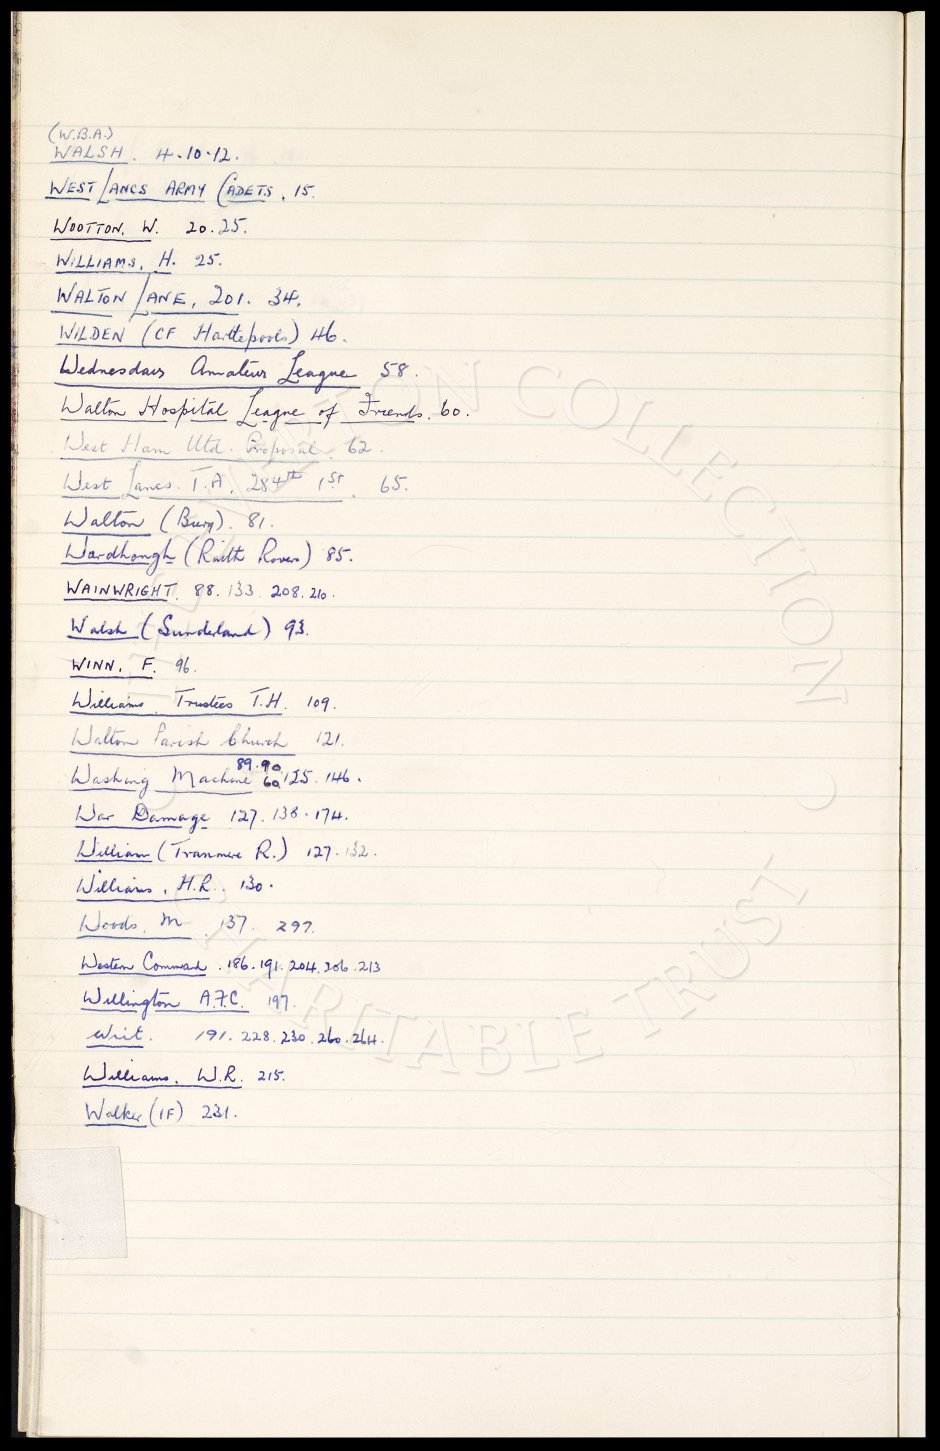 (W.B.A.)
WALSH. 4.10.12.
WEST LANCS ARMY CADETS. 15.
WOOTTON. W. 20.25.
WILLIAMS. H. 25.
WALTON LANE, 201. 34.
WILDEN (CF Hartlepools) 46.
Wednesdays Amateur League 58.
Walton Hospital League of Friends. 60.
West Ham Utd. Proposal. 62.
West Lancs. T.A. 284th 1st. 65.
Walton (Bury). 81.
Wardhaugh (Raith Rovers) 85.
WAINWRIGHT. 88. 133. 208. 210.
Walsh (Sunderland) 93.
WINN. F. 96.
Williams. Trustees T.H. 109.
Walton Parish Church 121.
89.90
Washing Machine 60 125. 146.
War Damage 127. 138. 174.
William (Tranmere R.) 127. 132.
Williams. H.R. 130.
Woods. M 137. 297.
Western Command. 186. 191. 204. 206. 213
Willington A.F.C. 197.
Writ. 191. 228. 230. 260. 264.
Williams. W.R. 215.
Walker (IF) 231.
COLLECTION
CHARITABLE TRUST